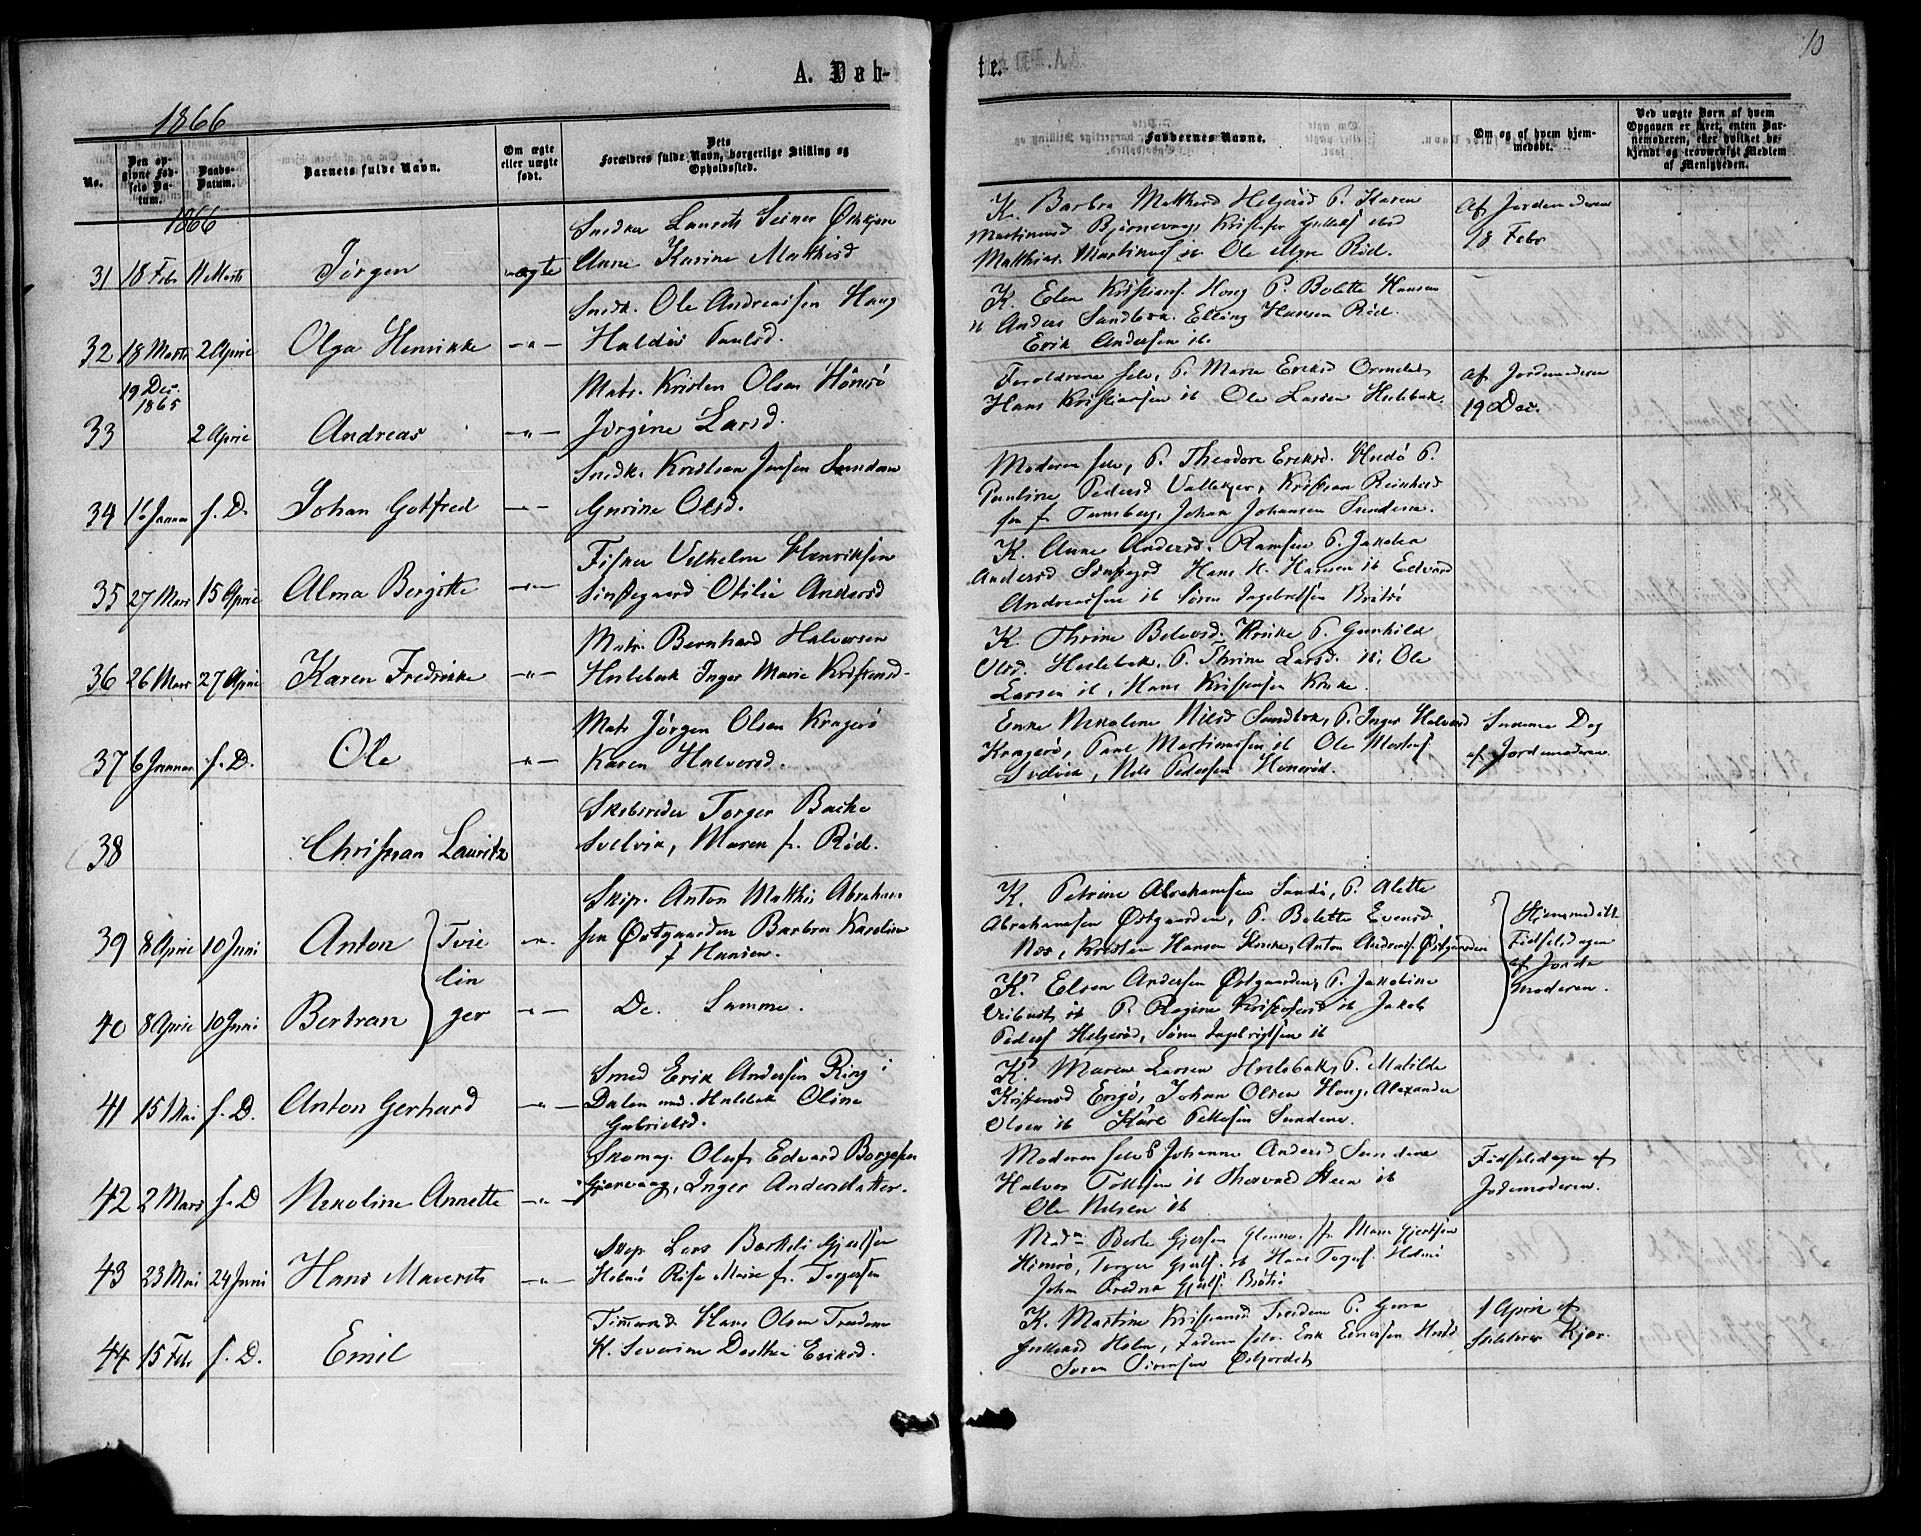 10
A. Døb-
te.
1866
No.
Den op-
givne Fød-
sels Da-
tum.
Daabs-
Datum.
Barnets fulde Navn.
Om ægte
eller uægte
født.
Dets
Forældres fulde Navn, borgerlige Stilling og
Opholdssted.
Faddernes Navne.
Om og af hvem hjem-
medøbt.
Ved uægte Børn af hvem
Opgaven er skeet, enten Bar-
nemoderen, eller hvilket be-
kjendt og troværdigt Medlem
af Menigheden.
1866
31 18 Febr 11 Marts Jørgen ægte
Snedker Laurits Seiner
Anne Karine Matthisd
K. Barbra Matthisd Helgerød P. Karen
Martinusd Bjørnevaag, Kristofer Gulliks sted
Matthias Martinus ib Ole Myre Rød.
Af Jordemoderen
18 Febr
32 18 Marts 2 April Olga Henrikke -"-
Snedk. Ole Andreassen Haug
Huldine Paulsd.
K. Elen Kristians. Haug P. Bolette Hansen
ib Anders Sandbæk. Elling Hansen Rød.
Erik Andersen ib.
33 19 Dec. 1865 2 April Andreas -"-
Matr. Kristen Olsen Hønsø
Jørgine Larsd.
Forældrene selv, P. Maren Eriksd Ormelet
Hans Kristiansen ib Ole Larsen Hulebak.
af Jordemoderen
19 Dec.
34 16 Januar f. D. Johan Gotfred -"-
Snedk. Kristian Jensen Sundene
Gurine Olsd.
Moderen selv, P. Theodora Eriksd. Hudø P.
Pauline Pedersd Valleker, Kristian Reinhard
sen fr. Tunsberg, Johan Johansen Sundene.
35 27 Mars 15 April Alma Bergitte -"-
Fisker Vilhelm Henriksen
Otilie Andersd
K. Anne Andersd. Ramsen P. Jakobea
Andersd Hans H. Hansen ib Edvard
Andreassen ib Søren Ingebretsen Brøtsø
36 26 Mars 27 April Karen Fredrikke -"-
Matr. Bernhard Halvorsen
Hulebak Inger Marie Kristensd-
K. Thrine Kruke P. Gunhild
Olsd. Hulebak, P. Thrine Larsd. ib, Ole
Larsen ib, Hans Kristensen Kruke.
37 6 Januar f. D. Ole -"-
Matr Jørgen Olsen Kragerø
Karen Halvorsd.
Enke Nikoline Nilsd Sundbæk, P. Inger Halvorsd
Kragerø, Paul Martinussen ib Ole
Svelvik, Nils Pedersen Honerød.
Samme Dag
af Jordemoderen
38 Christian Lauritz
Skibsreder Torger Bache
Svelvik, Maren f. Rød.
39 8 April 10 Juni Anton -"-
Tvil
lin
ger
Skip. Anton Matthis Abraham
sen Østgaarden Barbra Karoline
f Hansen.
K. Petrine Abrahamsen Sandø, P. Alette
Abrahamsen Østgaarden, P. Bolette Evensd
Næs, Kristen Hansen Kruke, Anton Anders Østgaarden
Hjemmedøbt
Fødselsdagen
af Jorde
moderen.
40 8 April 10 Juni Bertran -"-
De Samme.
K. Elsen Andersen Østgaarden, P. Jakobine
ib P. Ragine Kristofersd ib Jakob
Peders Helgerød, Søren Ingebrigtsen ib
41 15 Mai f. D. Anton Gerhard -"-
Smed Erik Andersen Ring i
Dalen und. Hulebak Oline
Gabrielsd.
K. Maren Larsen Hulebak, P. Matilde
Kristensd Engø, Johan Olsen Haug, Alexander
Olsen ib Karl Pettesen Sundene.
42 2 Mars f. D Nikoline Annette -"-
Skomag. Oluf Edvard Borgesen
Gjervaag, Inger Andersdatter.
Moderen selv P Johanne Andersd Sundene
Halvor Tollefsen ib Thorvald Steen ib
Ole Nilsen ib
Fødselsdagen af
Jodemoderen.
43 23 Mai 24 Juni Hans Mauerits -"-
Skip Lars Gjertsen
Holmø Rise Marie fr. Torgersen
Madm Berte Gjertsen Marn Gjertsen
Torger Gjerts. ib Hans Torgers Holmø
Johan Fredrik Gjerts. Brøtsø
44 15 Febr f. D. Emil
Hans Olsen Treidene
H. Severine Dorthea Eriksd.
K. Martine Kristiansd Treidene P. Gina
Holm, Faderen selv, Erik Evensen Hudø
Søren Simensen
1 April af
Kjær.